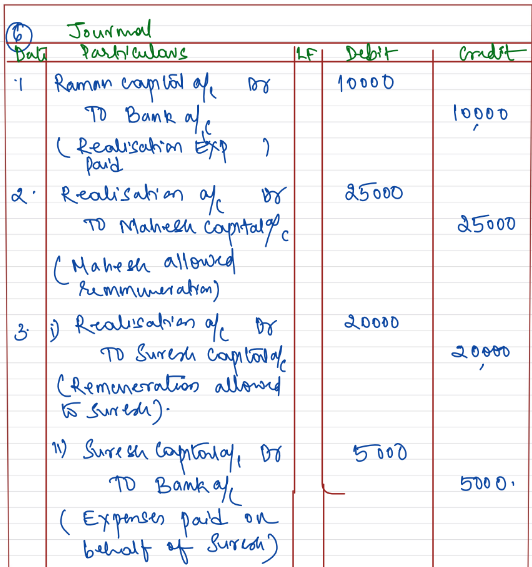 6 Journal
Date Particulars LF Debit Credit
1 Raman capital a/c Dr 10000
TO Bank a/c 10,000
( Realisation Exp )
paid
2. Realisation a/c Dr 25000
TO Mahesh capital a/c 25000
( Mahesh allowed
remmuneration)
3. i) Realisation a/c Dr 20000
TO Suresh Capital a/c 20,000
(Remuneration allowed
to Suresh).
ii) Suresh Capital a/c Dr 5000
TO Bank a/c 5000.
( Expenses paid on
behalf of Suresh)